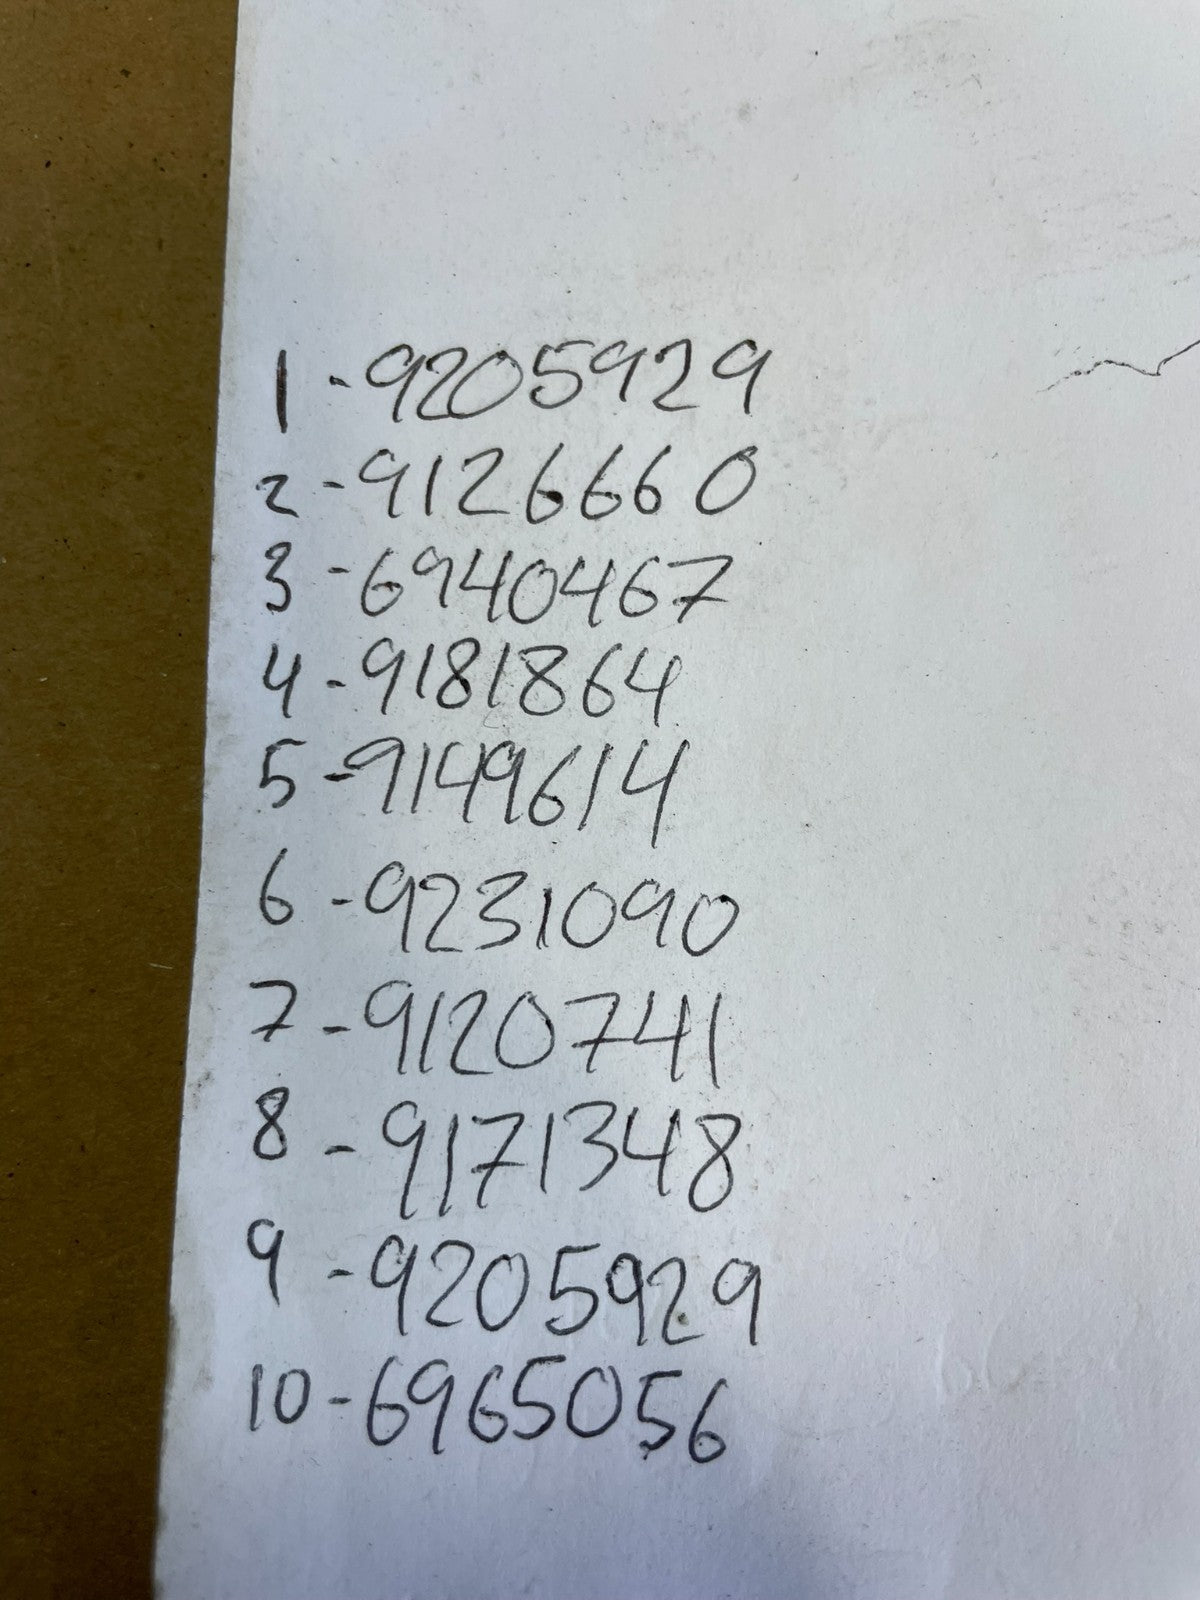 1 - 9205929
2 - 9126660
3 - 6940467
4 - 9181864
5 - 9149614
6 - 9231090
7 - 9120741
8 - 9171348
9 - 9205929
10 - 6965056